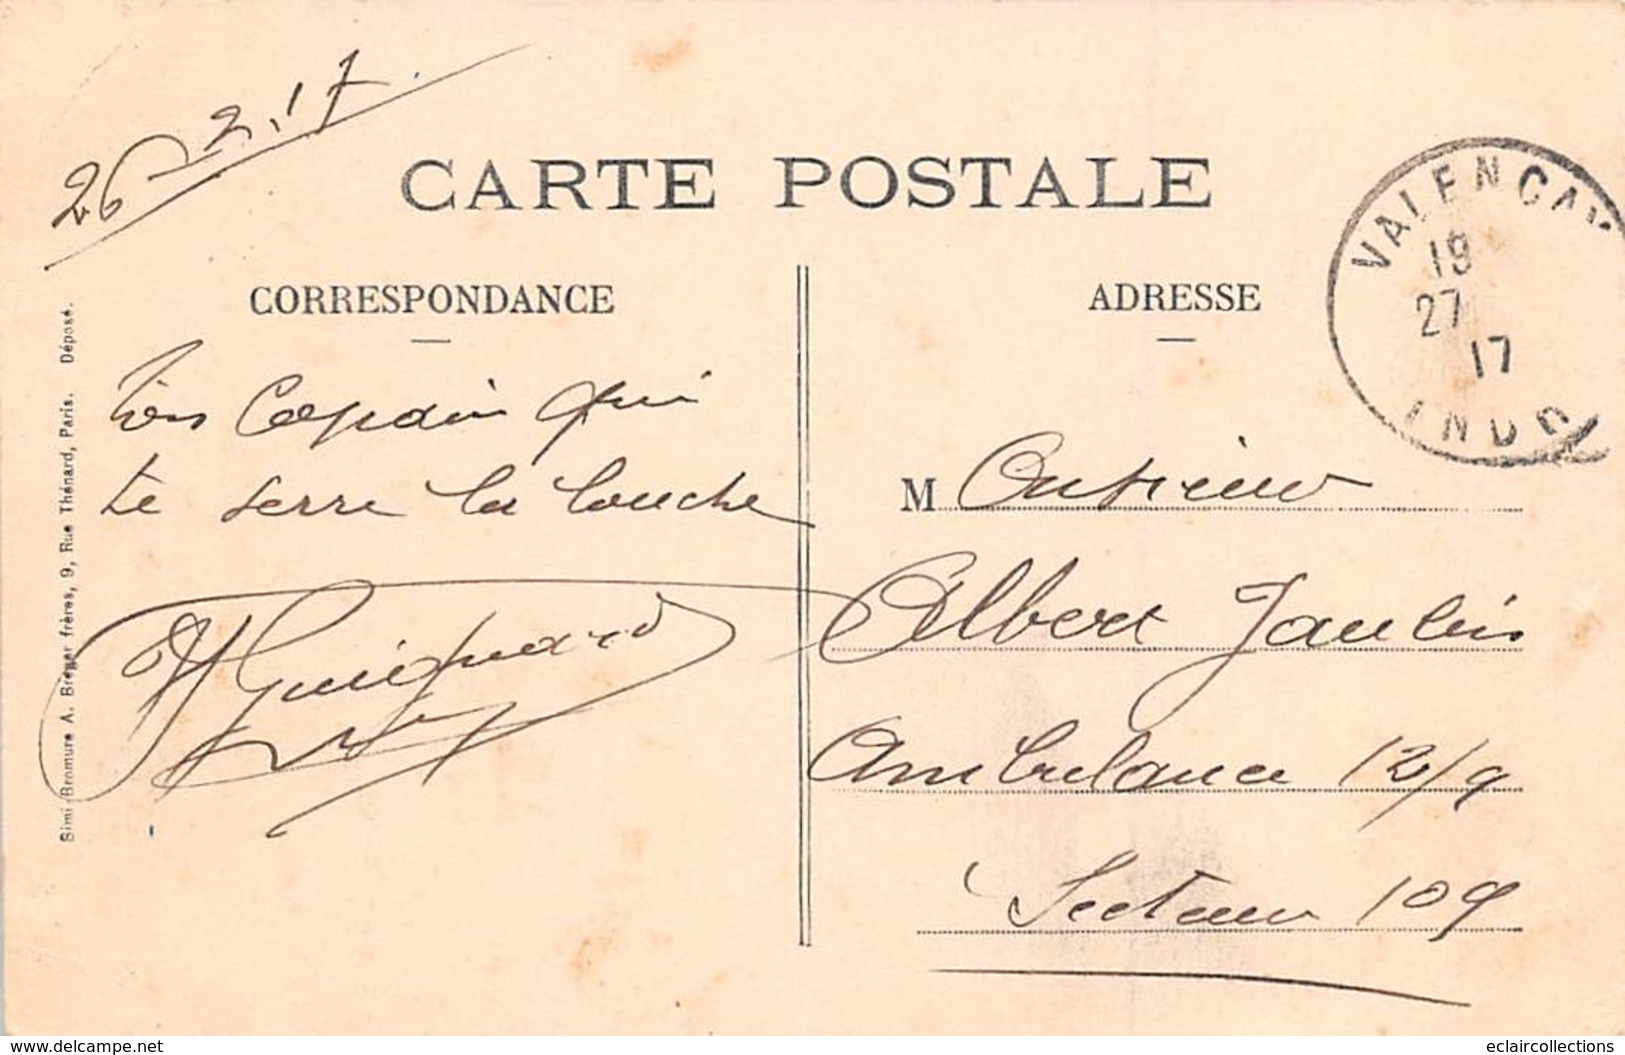 26-2.17.
CARTE POSTALE
CORRESPONDANCE
ADRESSE
VALENCAY
19
27
17
INDR
Ton Copain qui
te serre la louche
Guignard
M Onsieur
Albert Jaulin
Ambulance 12/9
Secteur 109
Simi-Bromure A. Breger frères, 9, Rue Thénard, Paris. Déposé.
www.delcampe.net
eclaircollections